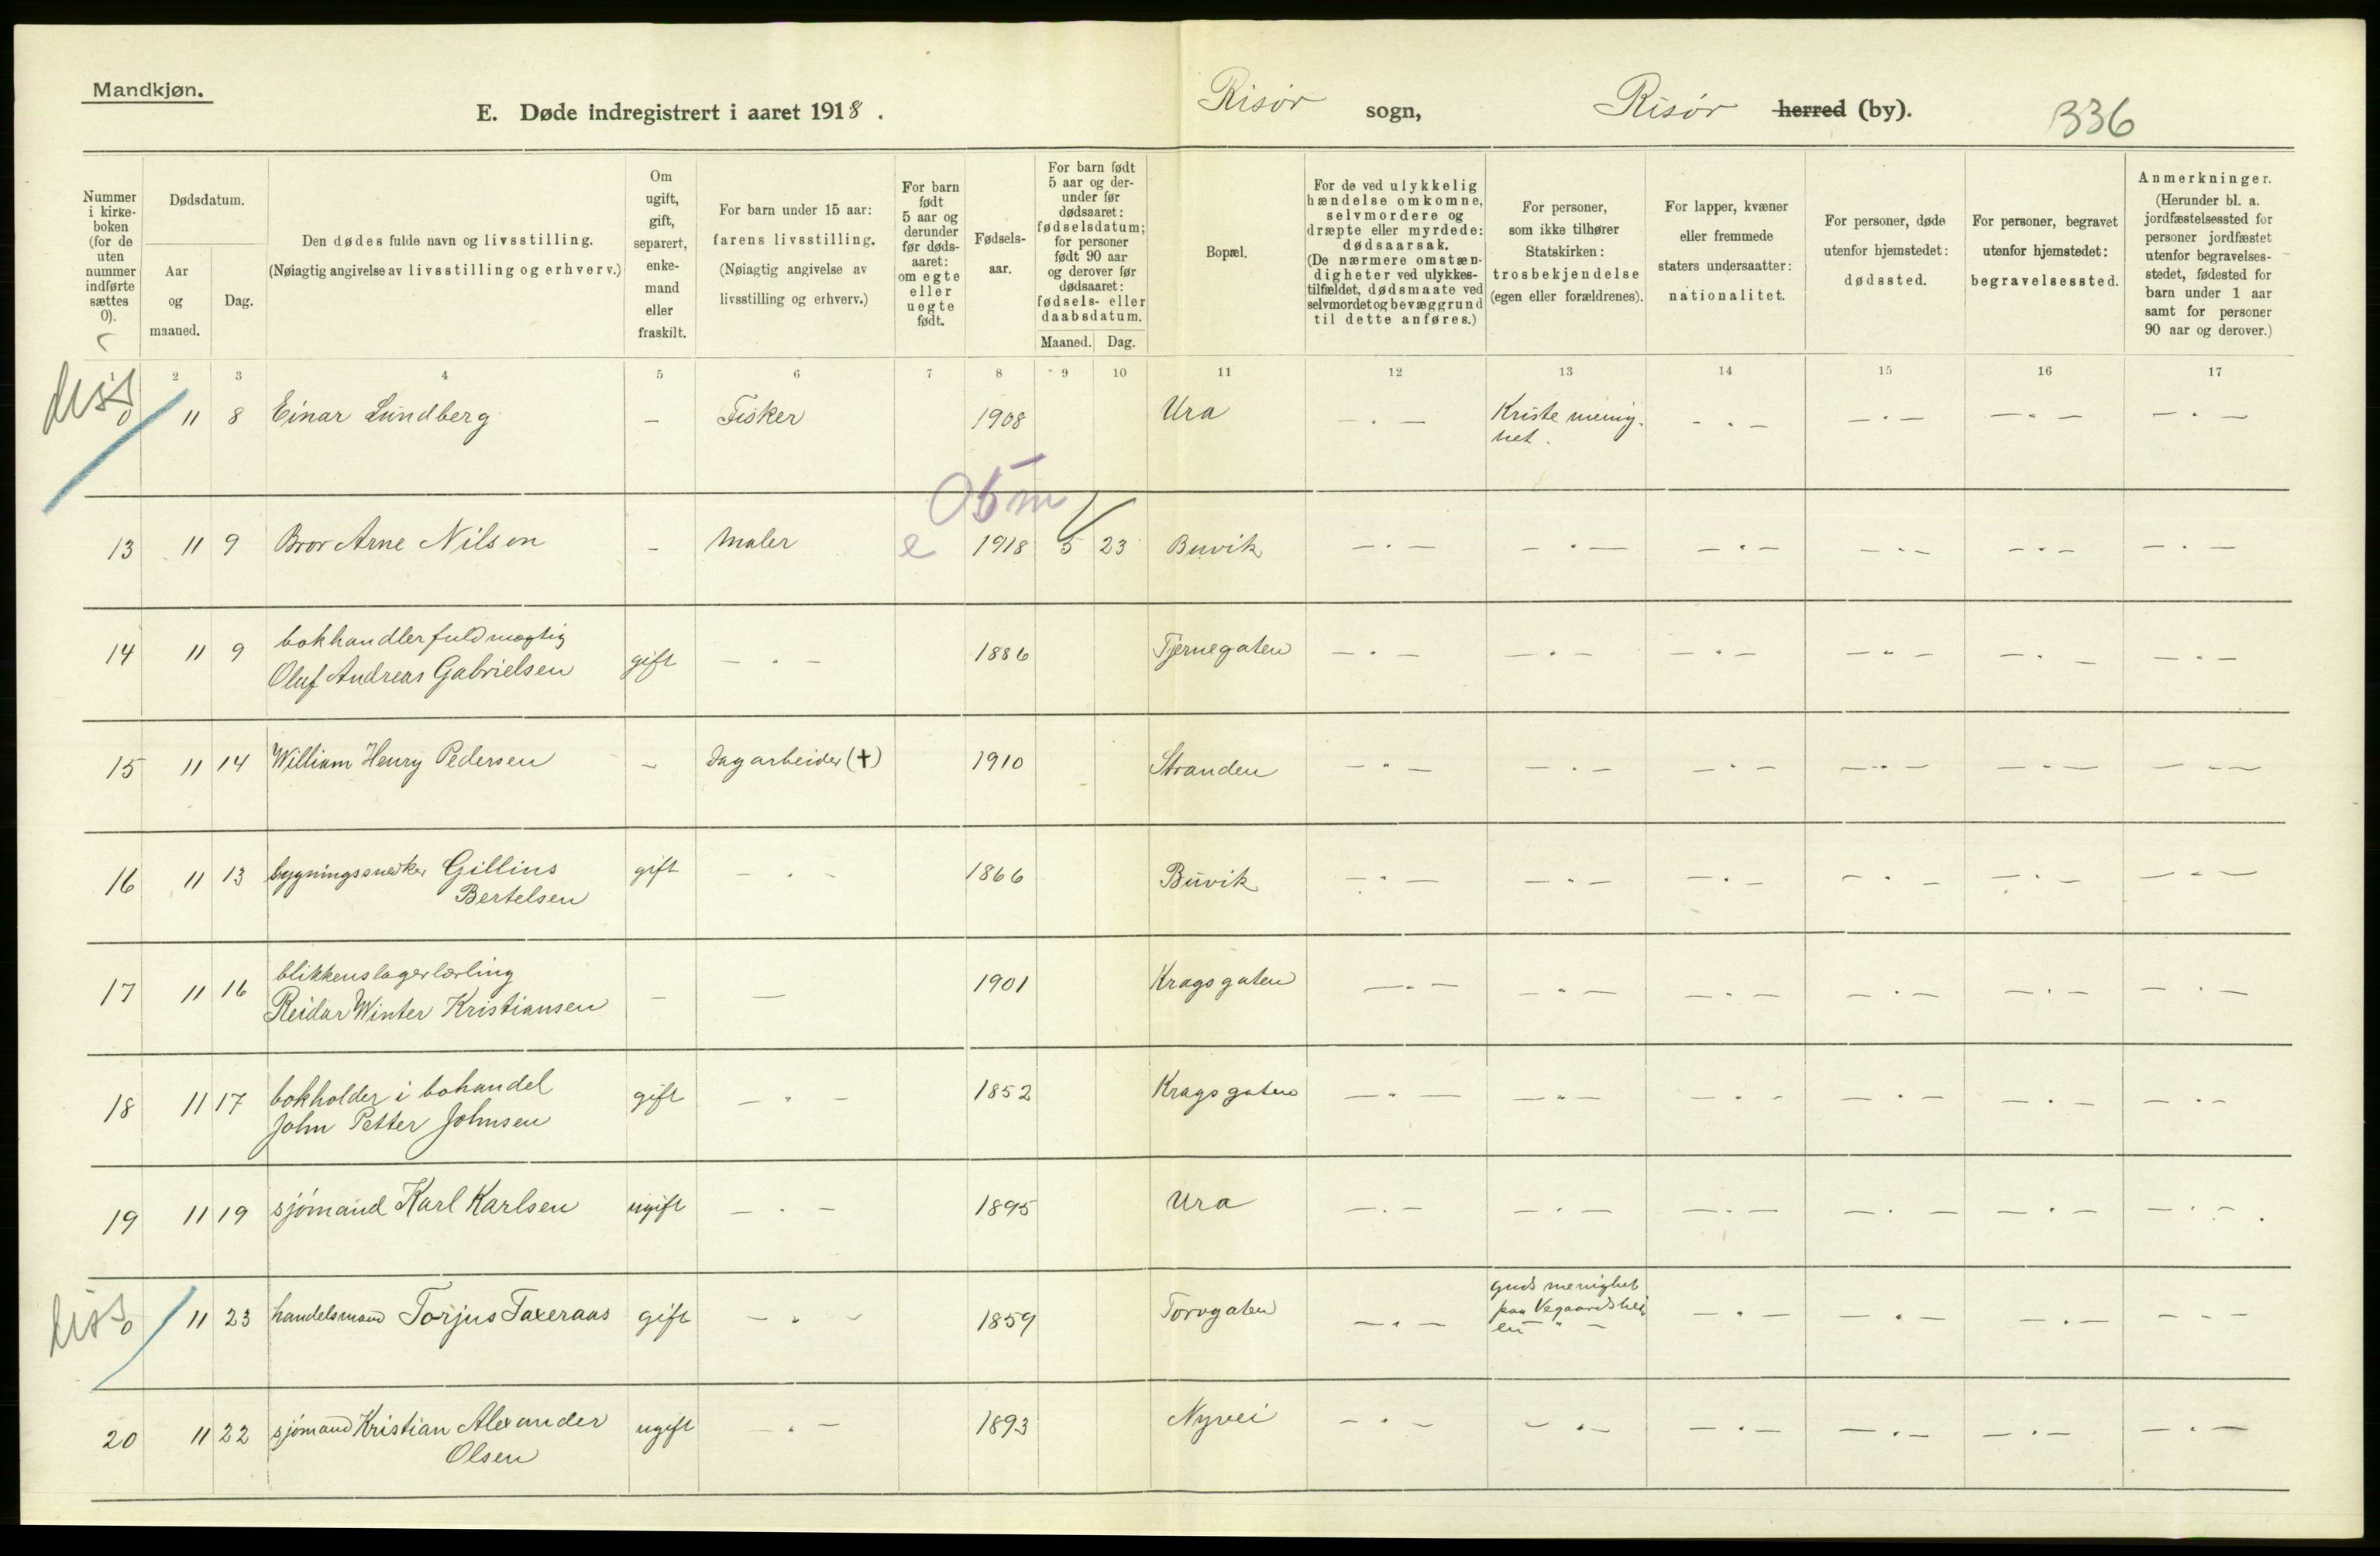 Mandkjøn.
E. Døde indregistrert i aaret 1918.
Risør sogn, Risør herred (by). 336
Nummer i kirkeboken (for de uten nummer indførte sættes 0).
Dødsdatum.
Aar og maaned.
Dag.
Den dødes fulde navn og livsstilling.
(Nøiagtig angivelse av livsstilling og erhverv.)
Om ugift, gift, separert, enkemand eller fraskilt.
For barn under 15 aar: farens livsstilling. (Nøiagtig angivelse av livsstilling og erhverv.)
For barn født 5 aar og derunder før dødsaaret: om egte eller uegte født.
Fødselsaar.
For barn født 5 aar og derunder før dødsaaret: fødselsdatum; for personer født 90 aar og derover før dødsaaret: fødsels- eller daabsdatum.
Maaned. Dag.
Bopæl.
For de ved ulykkelig hændelse omkomne, selvmordere og dræpte eller myrdede: dødsaarsak. (De nærmere omstændigheter ved ulykkestilfældet, dødsmaate ved selvmordet og bevæggrund til dette anføres.)
For personer, som ikke tilhører Statskirken: trosbekjendelse (egen eller forældrenes).
For lapper, kvæner eller fremmede staters undersaatter: nationalitet.
For personer, døde utenfor hjemstedet: dødssted.
For personer, begravet utenfor hjemstedet: begravelsessted.
Anmerkninger. (Herunder bl. a. jordfæstelsessted for personer jordfæstet utenfor begravelsesstedet, fødested for barn under 1 aar samt for personer 90 aar og derover.)
1 2 3 4 5 6 7 8 9 10 11 12 13 14 15 16 17
diss
0 11 8 Einar Lundberg – Fisker 1908 Ura – " – Kriste menig- – " – – " – – " – – " –
het.
05 m
13 11 9 Bror Arne Nilsen – Maler e 1918 5 23 Buvik – " – – " – – " – – " – – " – – " –
14 11 9 bokhandlerfuldmægtig
Oluf Andreas Gabrielsen gift – " – 1886 Tjernegaten – " – – " – – " – – " – – " – – " –
15 11 14 William Henry Pedersen – Dagarbeider (+) 1910 Stranden – " – – " – – " – – " – – " – – " –
16 11 13 bygningssnedker Gillius gift – " – 1866 Buvik – " – – " – – " – – " – – " – – " –
Bertelsen
17 11 16 blikkenslagerlærling
Reidar Winter Kristiansen – – 1901 Kragsgaten – " – – " – – " – – " – – " – – " –
18 11 17 bokholder i bohandel gift – " – 1852 Kragsgaten – " – – " – – " – – " – – " – – " –
John Petter Johnsen
19 11 19 sjømand Karl Karlsen ugift – " – 1895 Ura – " – – " – – " – – " – – " – – " –
diss
0 11 23 handelsmand Torjus Taxeraas gift – " – 1859 Torvgaten – " – Guds menighet – " – – " – – " – – – –
paa Vegaardshei
en – " –
20 11 22 sjømand Kristian Alexander ugift – " – 1893 Nyvei – " – – " – – " – – " – – " – – " –
Olsen